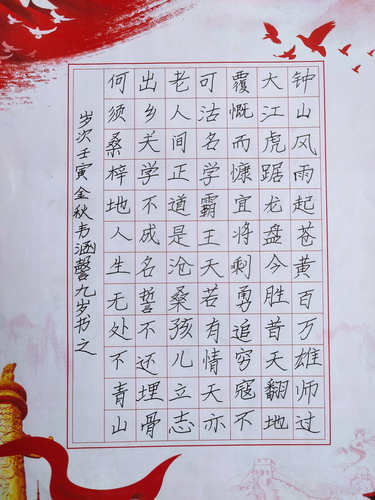 钟山风雨起苍黄百万雄师过
大江虎踞龙盘今胜昔天翻地
覆慨而慷宜将剩勇追穷寇不
可沽名学霸王天若有情天亦
老人间正道是沧桑孩儿立志
出乡关学不成名誓不还埋骨
何须桑梓地人生无处不青山
岁次壬寅金秋韦涵馨九岁书之